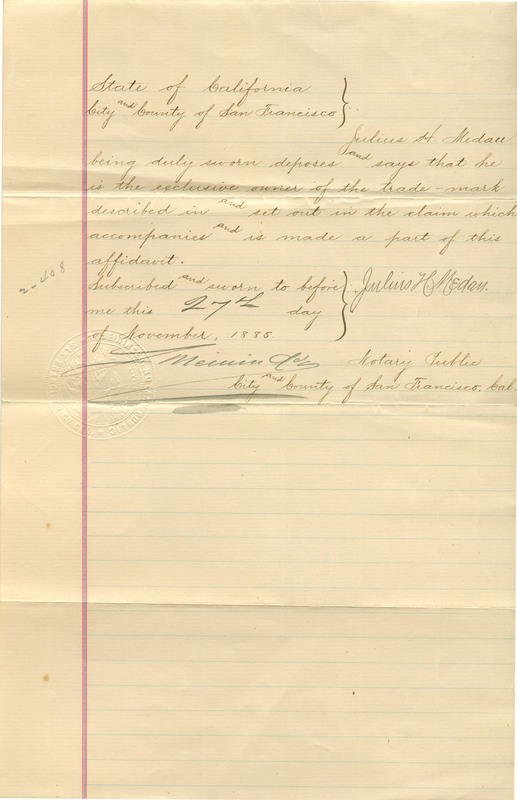 State of California }
City and County of San Francisco }
Julius H. Medau
being duly sworn deposes and says that he
is the exclusive owner of the trade-mark
described in and set out in the claim which
accompanies and is made a part of this
affidavit.
2-408
Subscribed and sworn to before } Julius H Medau.
me this 27th day
of November, 1885.
Notary Public
City and County of San Francisco. Cal.